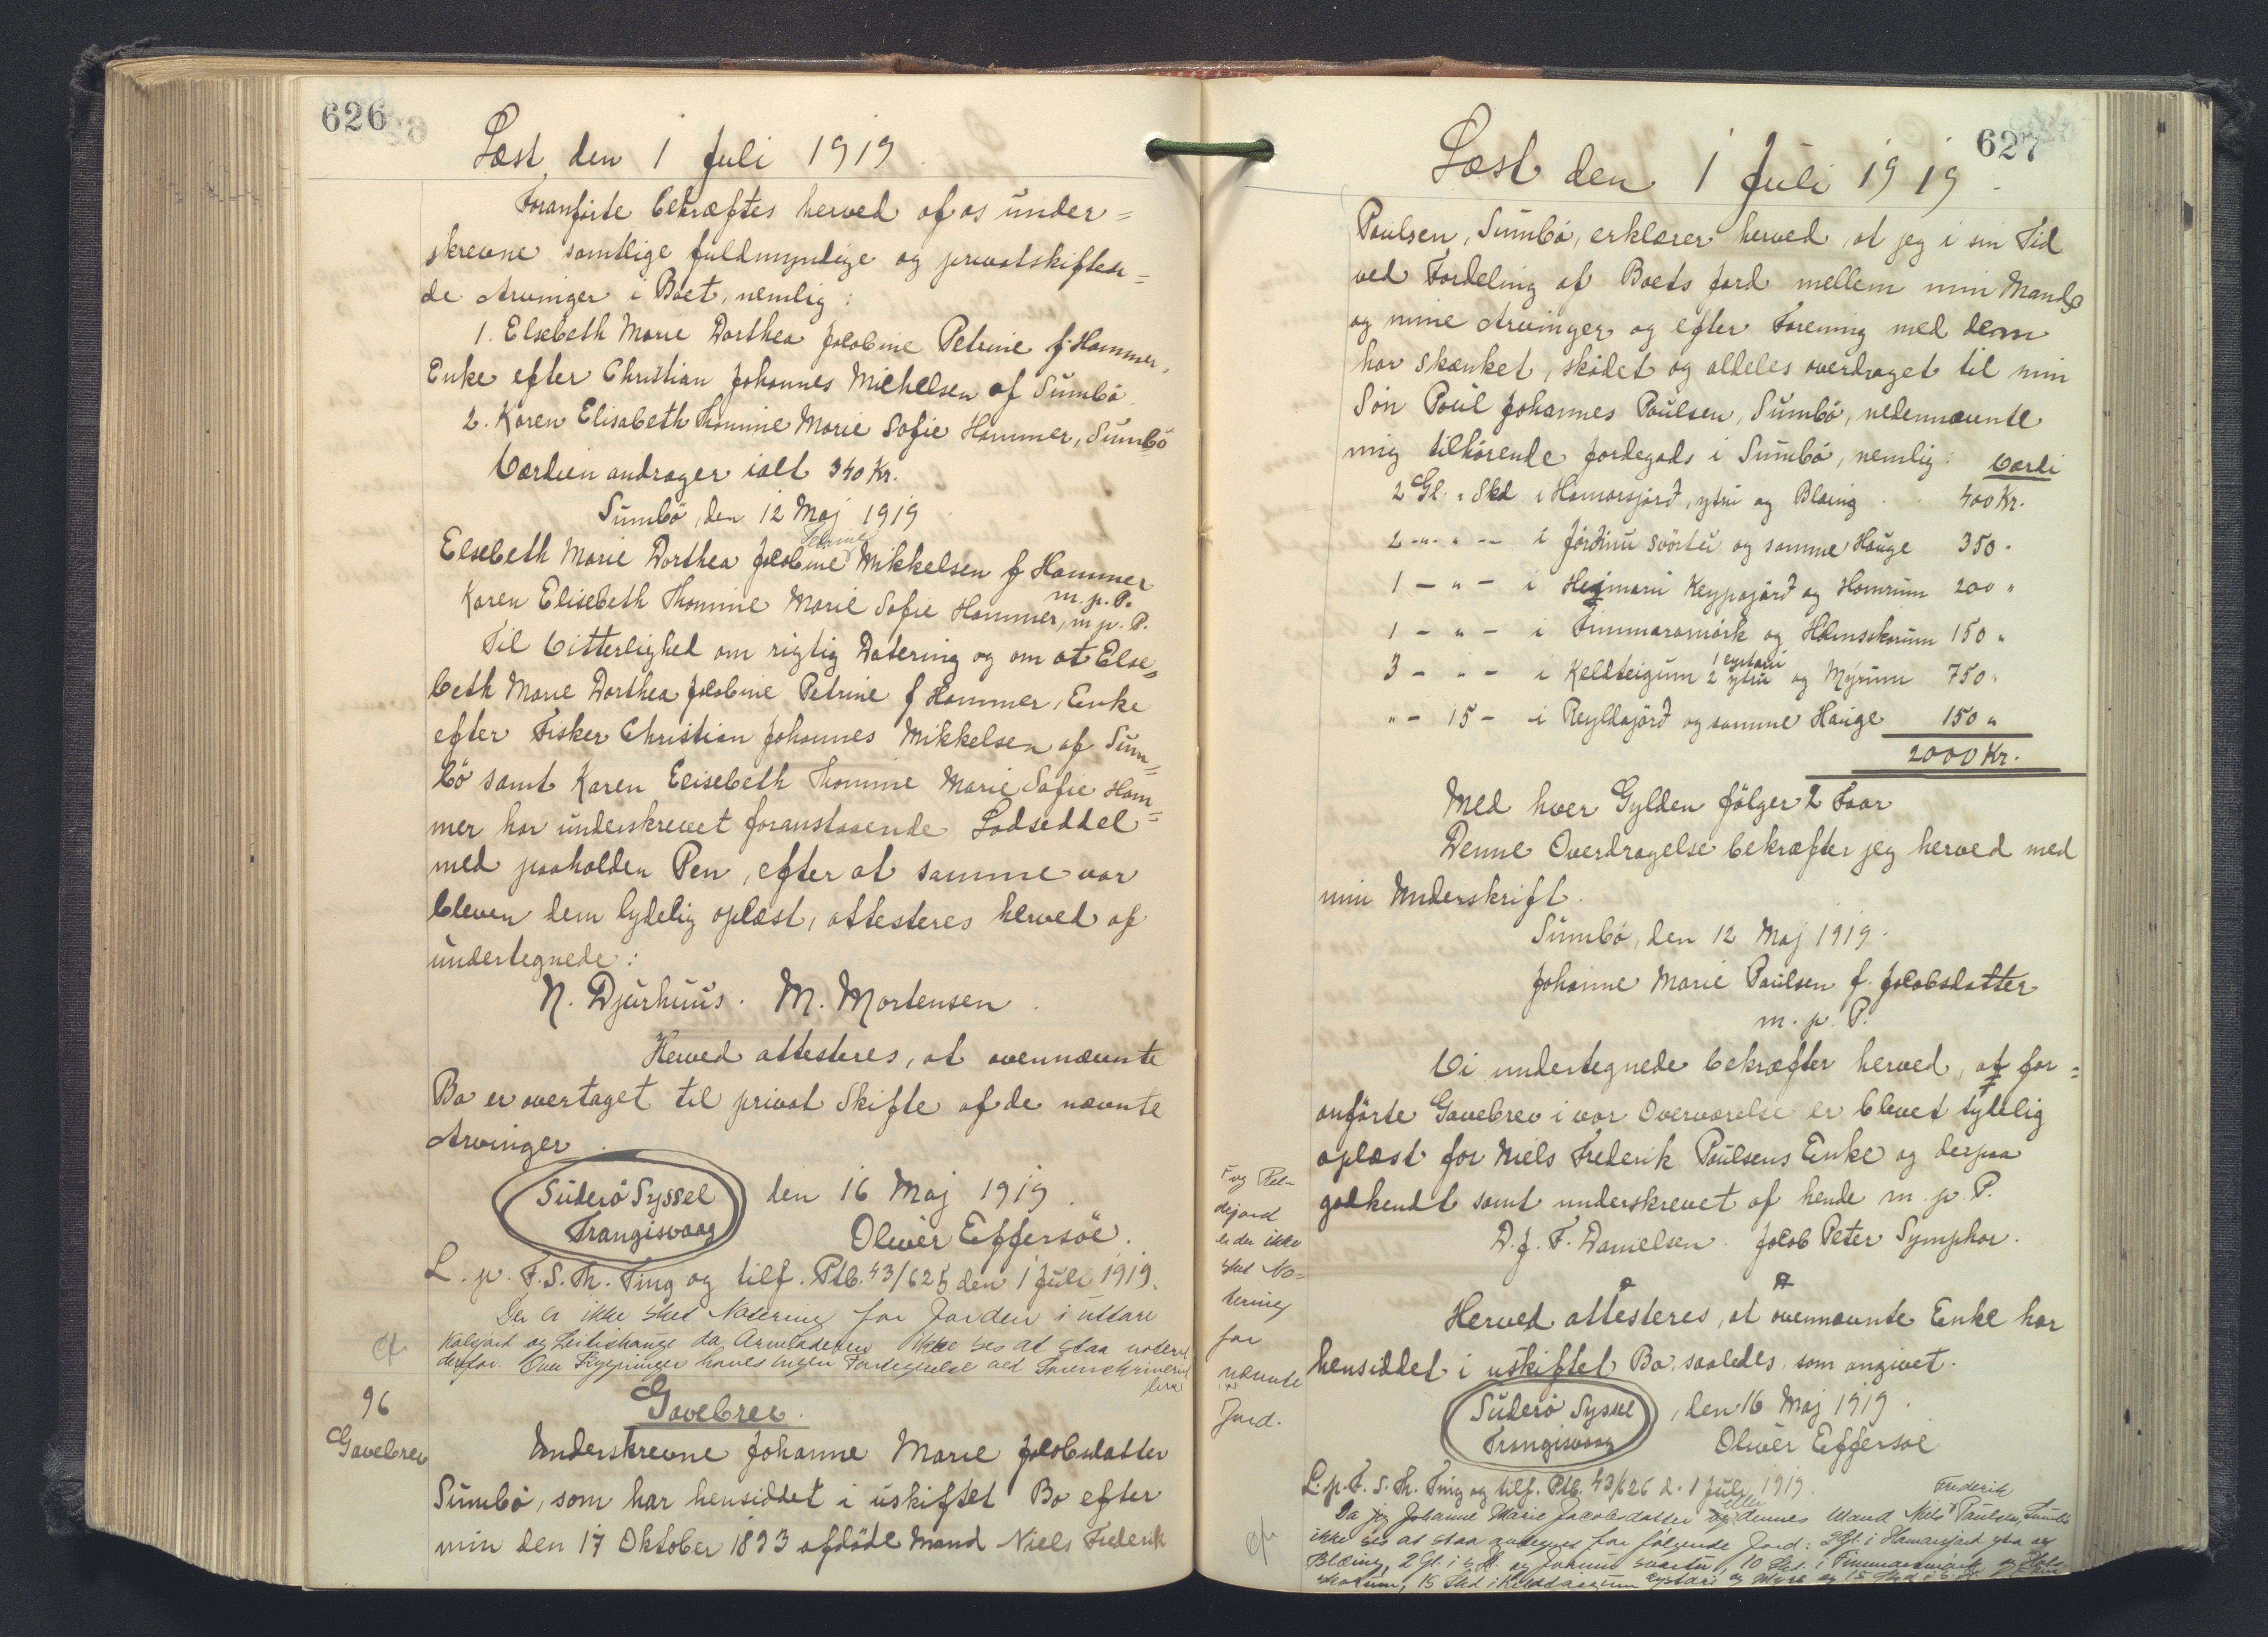 626
Læst den 1 Juli 1919.
Foranførte bekræftes herved af os under=
skrevne samtlige fuldmyndige og privatskiften=
de Arvinger i Boet, nemlig:
1. Elsebeth Marie Dorthea Jakobine Petrine f. Hammer,
Enke efter Christian Johannes Michelsen af Sumbö.
2. Karen Elisabeth Thomine Marie Sofie Hammer, Sumbö
Værdien andrager ialt 340 Kr.
Sumbö, den 12 Maj 1919
Elsebeth Marie Dorthea Jakobine Mikkelsen f Hammer
m. p. P.
Karen Elisebeth Thomine Marie Sofie Hammer, m. p. P.
Til Vitterlighed om rigtig Datering og om at Else=
beth Marie Dorthea Jakobine Petrine f Hammer, Enke
efter Fisker Christian Johannes Mikkelsen af Sum=
bö samt Karen Elisebeth Thomine Marie Sofie Ham=
mer har underskrevet foranstaaende Lodseddel
med paaholden Pen, efter at samme var
bleven dem lydelig oplæst, attesteres herved af
undertegnede:
N. Djurhuus. M. Mortensen.
Herved attesteres, at ovennævnte
Bo er overtaget til privat Skifte af de nævnte
Arvinger.
Suderö Syssel
Trangisvaag
den 16 Maj 1919.
Oliver Effersöe.
L. p. F. S. Th. Ting og tilf. Ptb. 43/625 den 1 Juli 1919.
Der er ikke sket Notering for Jorden i uttare
Kalvjord og Leitishauge da Arveladeren ikke ses at staa noteret
derfor. Over Bygninger haves ingen Fortegnelse ved Sorenskriveriet
96
Gavebrev
Gavebrev.
Underskrevne Johanne Marie Jakobsdatter
Sumbö, som har hensiddet i uskiftet Bo efter
min den 17 Oktober 1893 afdöde Mand Niels Frederik
627
Læst den 1 Juli 1919.
Poulsen, Sumbö, erklærer herved, at jeg i sin Tid
ved Fordeling af Boets Jord mellem min Mands
og mine Arvinger og efter Forening med dem
har skænket, sködet og aldeles overdraget til min
Sön Poul Johannes Poulsen, Sumbö, nedennævnte
mig tilhörende Jordegods i Sumbö, nemlig: Værdi
2 Gl. " Skd i Hamarsjørð, ytri og Blæing . . 400 Kr.
2 -"- " -- i Jördinu svörtu og samme Hauge 350 "
1 - " - i Heimari Keypajörð og Homrum 200 "
1 - " - i Fimmaramörk og Holmsskorum 150 "
3 - " - i Kelldeigum 1 eystari 2 ytri og Mýrum 750 "
" - 15 - i Reyldajörð og samme Hauge 150 "
2000 Kr.
Med hver Gylden fölger 2 Faar
Denne Overdragelse bekræfter jeg herved med
min Underskrift.
Sumbö, den 12 Maj 1919.
Johanne Marie Poulsen f. Jakobsdatter
m. p. P.
Vi undertegnede bekræfter herved, at for=
anförte Gavebrev i vor Overværelse er blevet lydelig
oplæst for Niels Frederik Poulsens Enke og derpaa
godkendt samt underskrevet af hende m. p. P.
D. J. F. Danielsen. Jakob Peter Symphor.
Herved attesteres, at ovennævnte Enke har
hensiddet i uskiftet Bo saaledes som angivet.
Suderö Syssel
Trangisvaag
, den 16 Maj 1919.
Oliver Effersöe
L. p. F. S. Th. Ting og tilf. Ptb. 43/626 d. 1 Juli 1919.
Da Johanne Marie Jacobsdatter eller dennes Mand Niels Frederik Paulsen, Sumbö
ikke ses at staa antegnet for følgende Jord: 2 Gl. i Hamarsjord ytra og
Blæing, 2 Gl. i Jorinni svartu, 10 Skd. i Fimmaramørk og Holm
skorum, 15 Skd i Kelddeigum eystari og
og Rel-
dejord
er der ikke
sket No=
tering
for
nævnte
Jord.